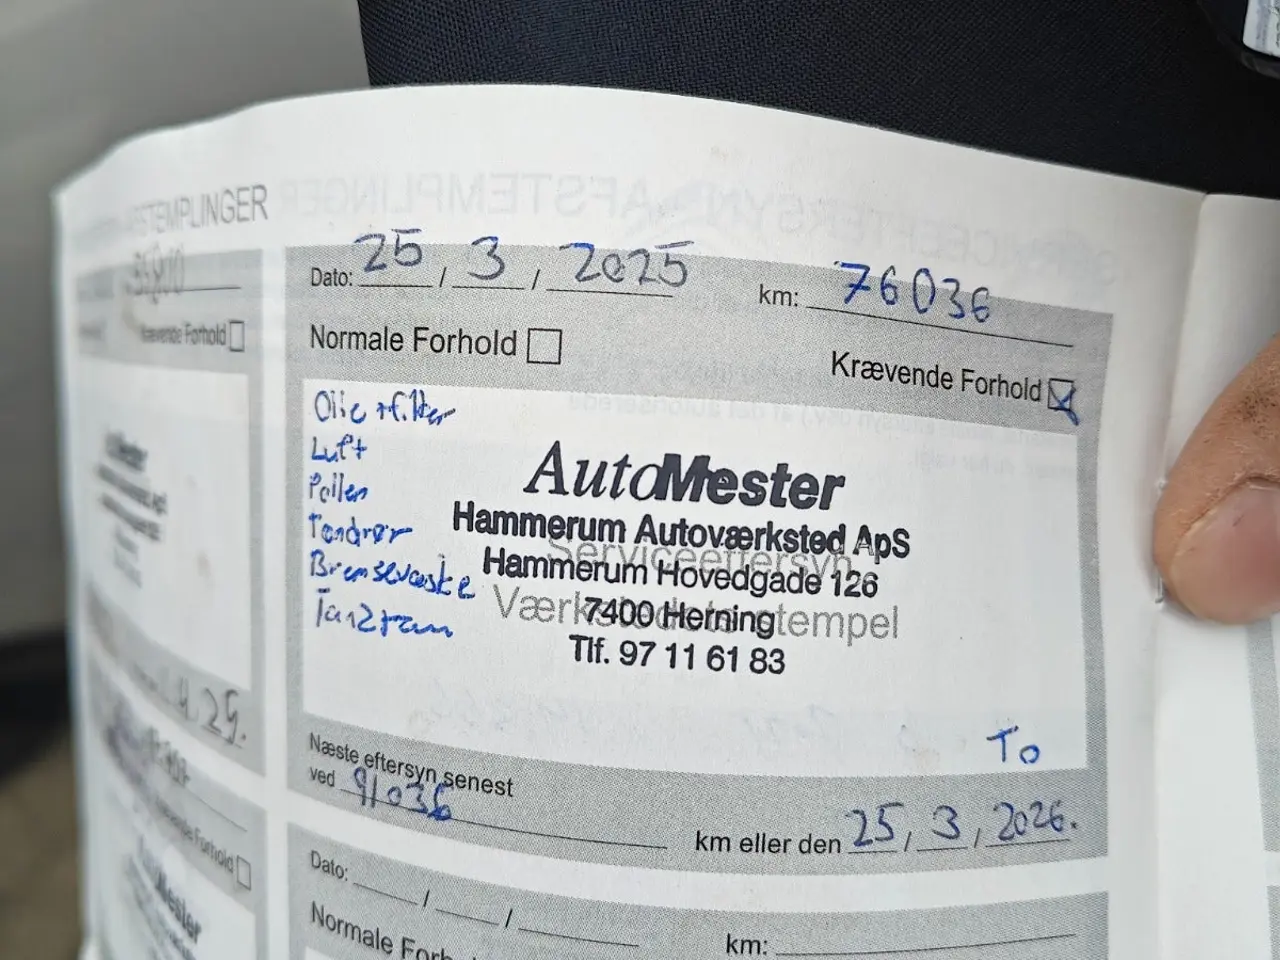 AFSTEMPLINGER
Krævende Forhold
Dato: 25 / 3 / 2025 km: 76036
Normale Forhold Krævende Forhold
Olie + filter
Luft
Pollen
Tændrør
Bremsevæske
AutoMester
Hammerum Autoværksted ApS
Serviceeftersyn
Hammerum Hovedgade 126
Værkstedets stempel
7400 Herning
Tlf. 97 11 61 83
To
Næste eftersyn senest
ved 91036 km eller den 25 / 3 / 2026.
Dato: / / km:
Normale